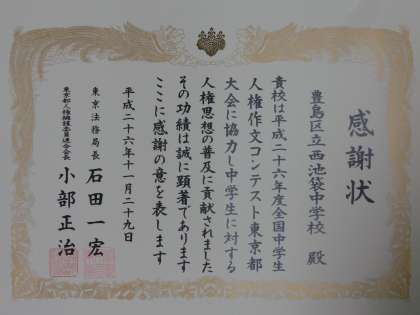 感謝状
豊島区立西池袋中学校 殿
貴校は平成二十六年度全国中学生
人権作文コンテスト東京都
大会に協力し中学生に対する
人権思想の普及に貢献されました
その功績は誠に顕著であります
ここに感謝の意を表します
平成二十六年十一月二十九日
東京法務局長 石田一宏
東京都人権擁護委員連合会長 小部正治